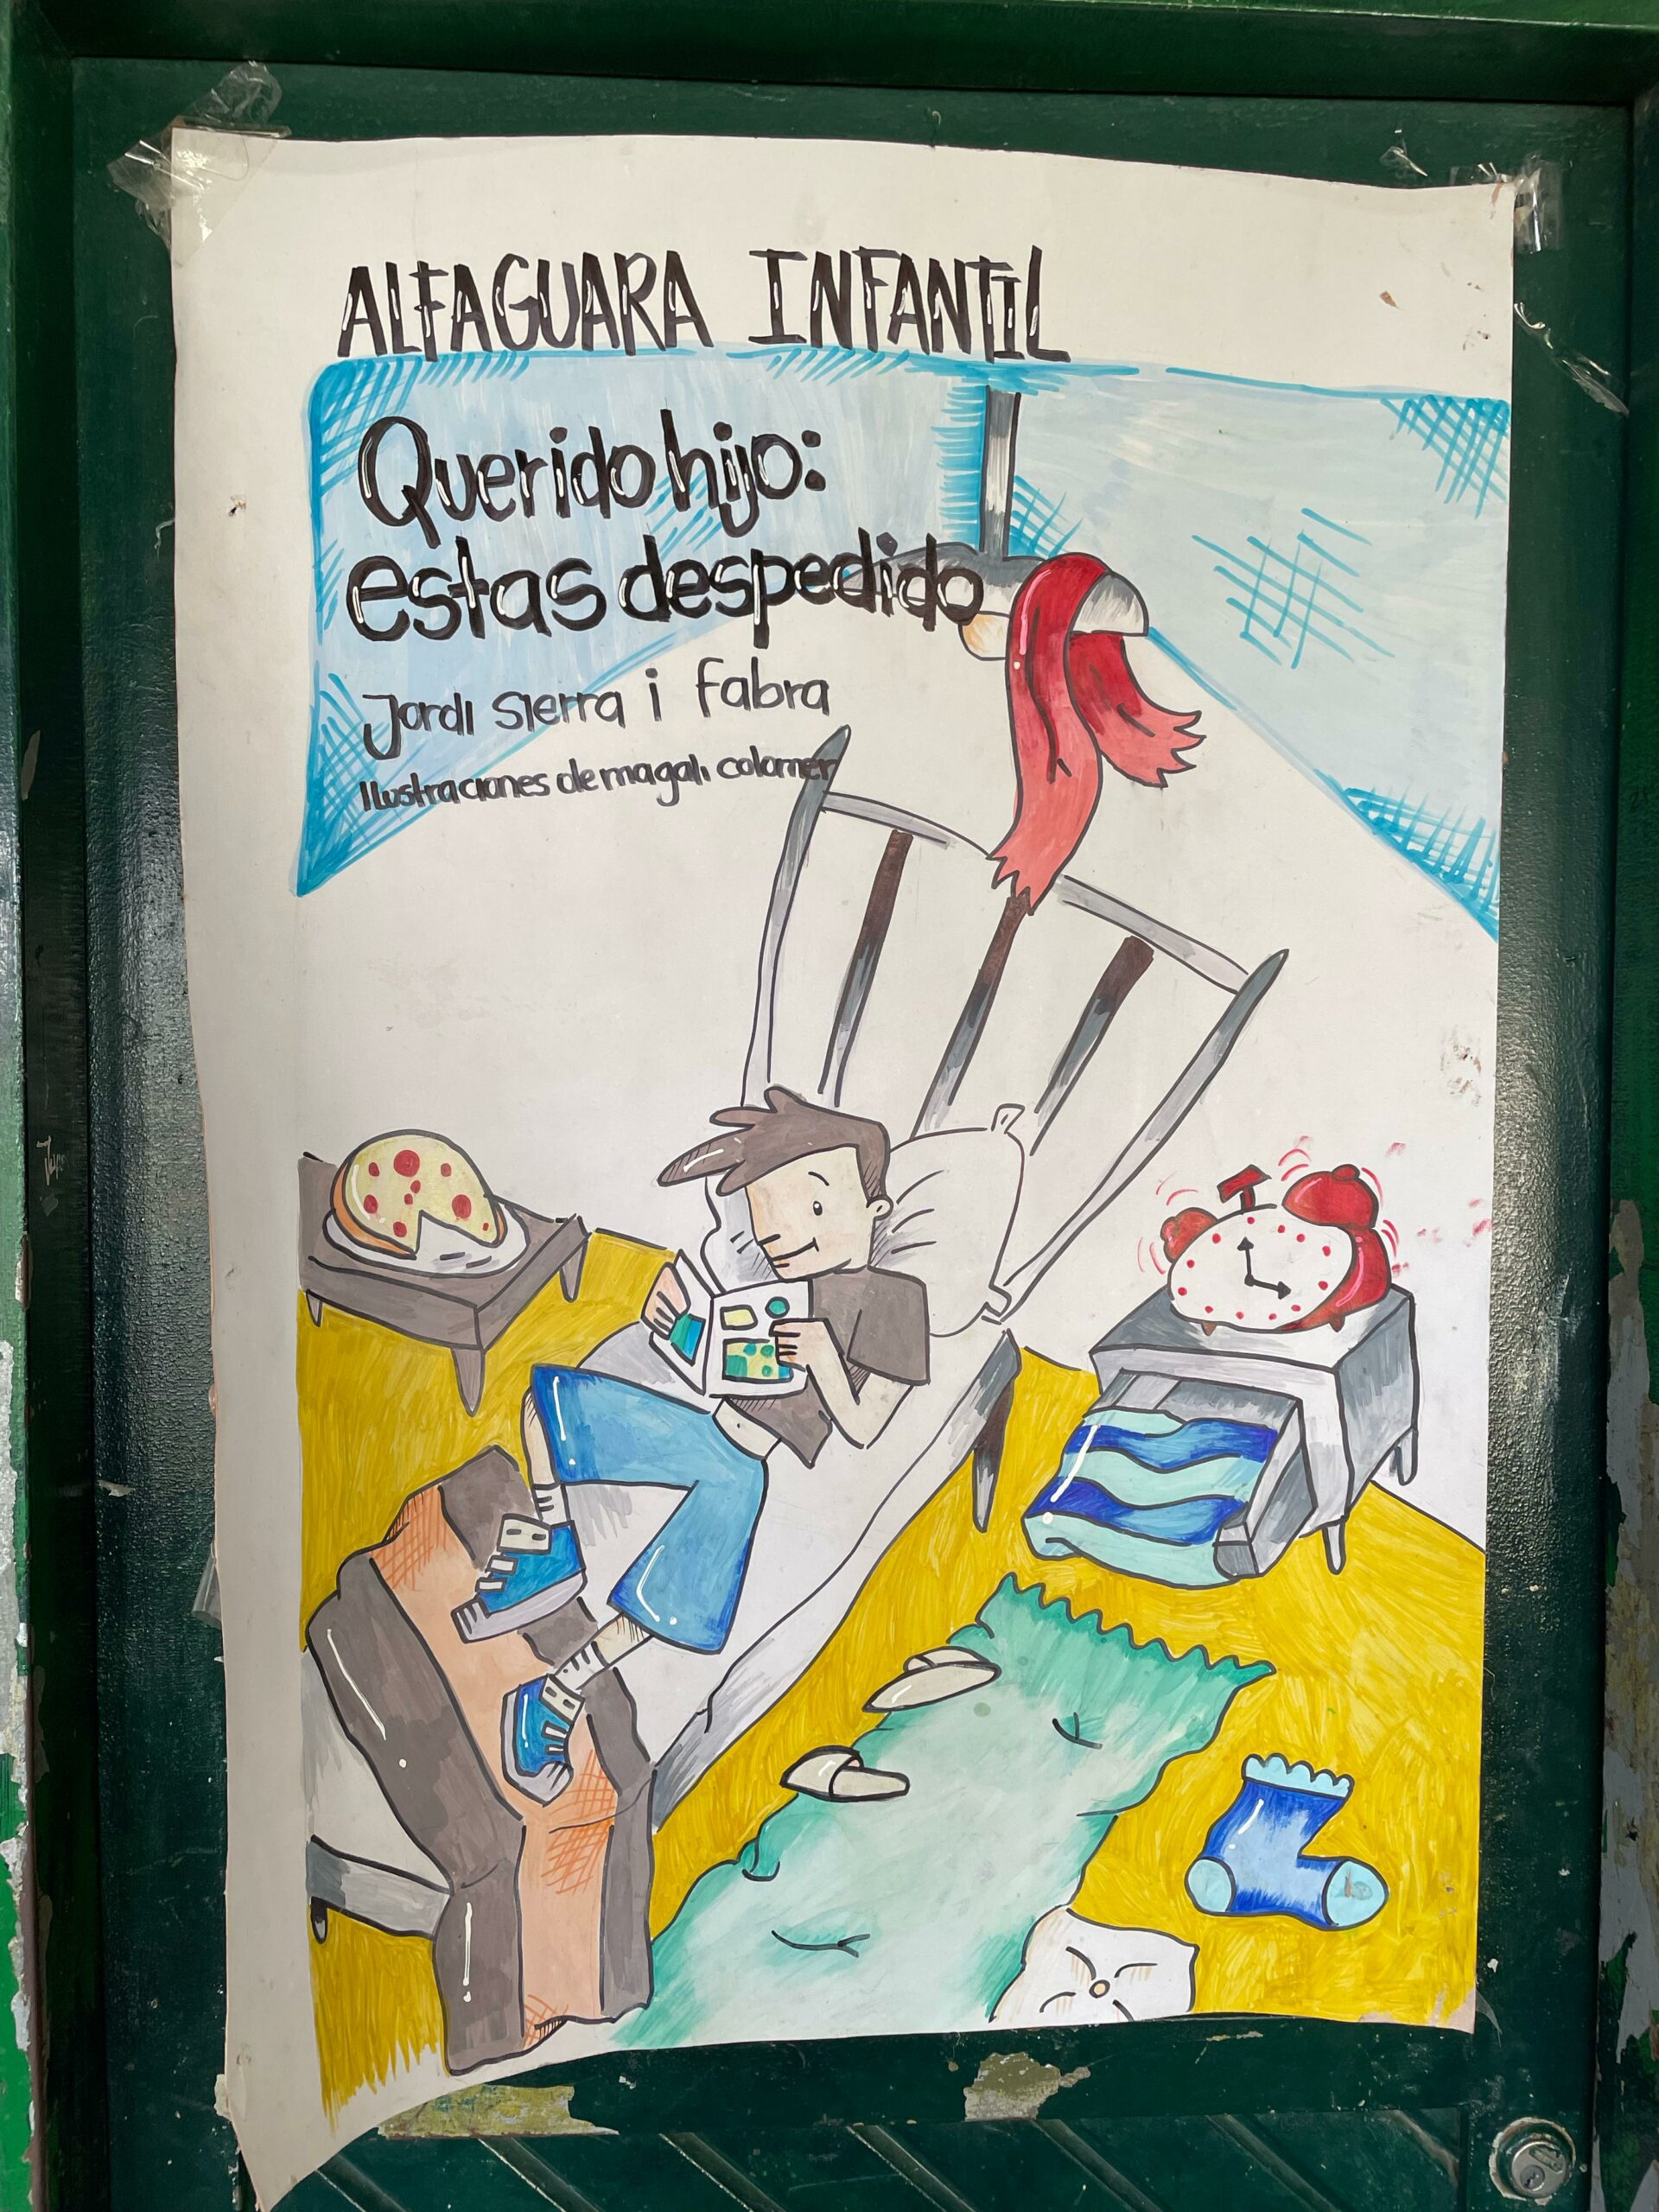 ALFAGUARA INFANTIL
Querido hijo:
estas despedido
Jordi Sierra i fabra
Ilustraciones de magali colomer